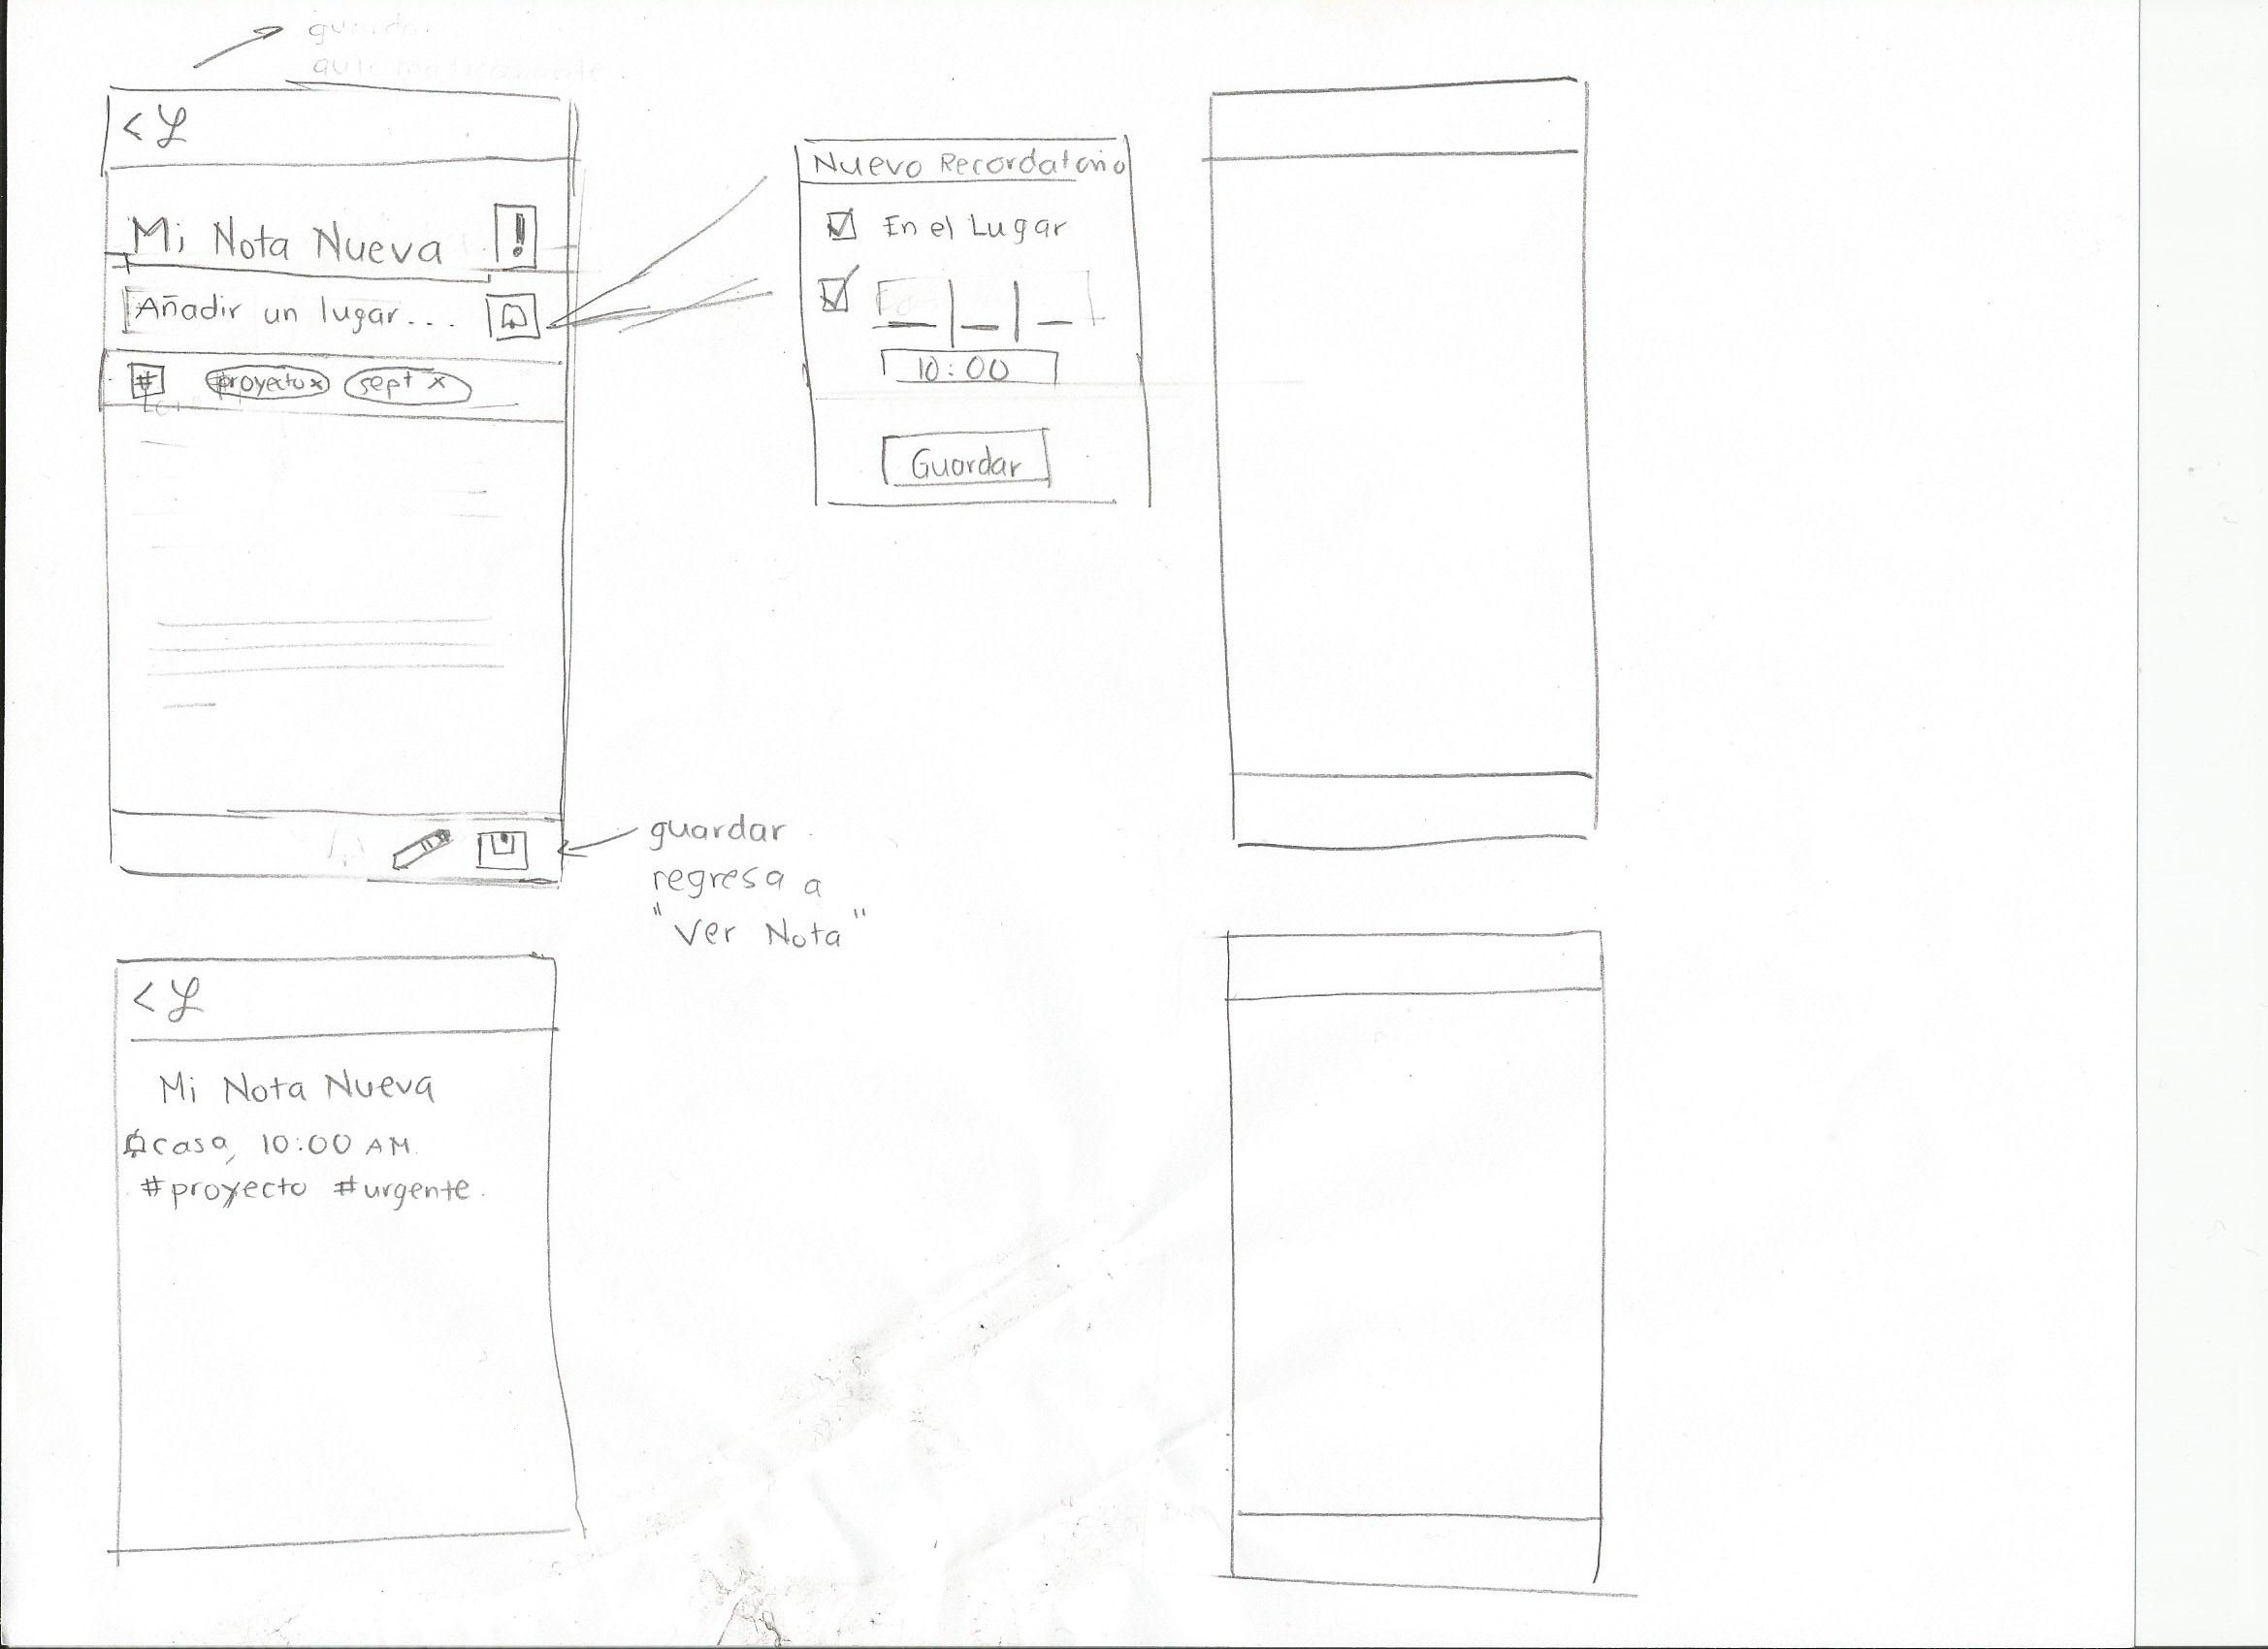 guardar
automáticamente.
< L
Mi Nota Nueva !
Añadir un lugar...
# #proyecto x sept x
guardar
regresa a
"Ver Nota"
Nuevo Recordatorio
En el Lugar
10:00
Guardar
< L
Mi Nota Nueva
casa, 10:00 AM.
#proyecto #urgente.